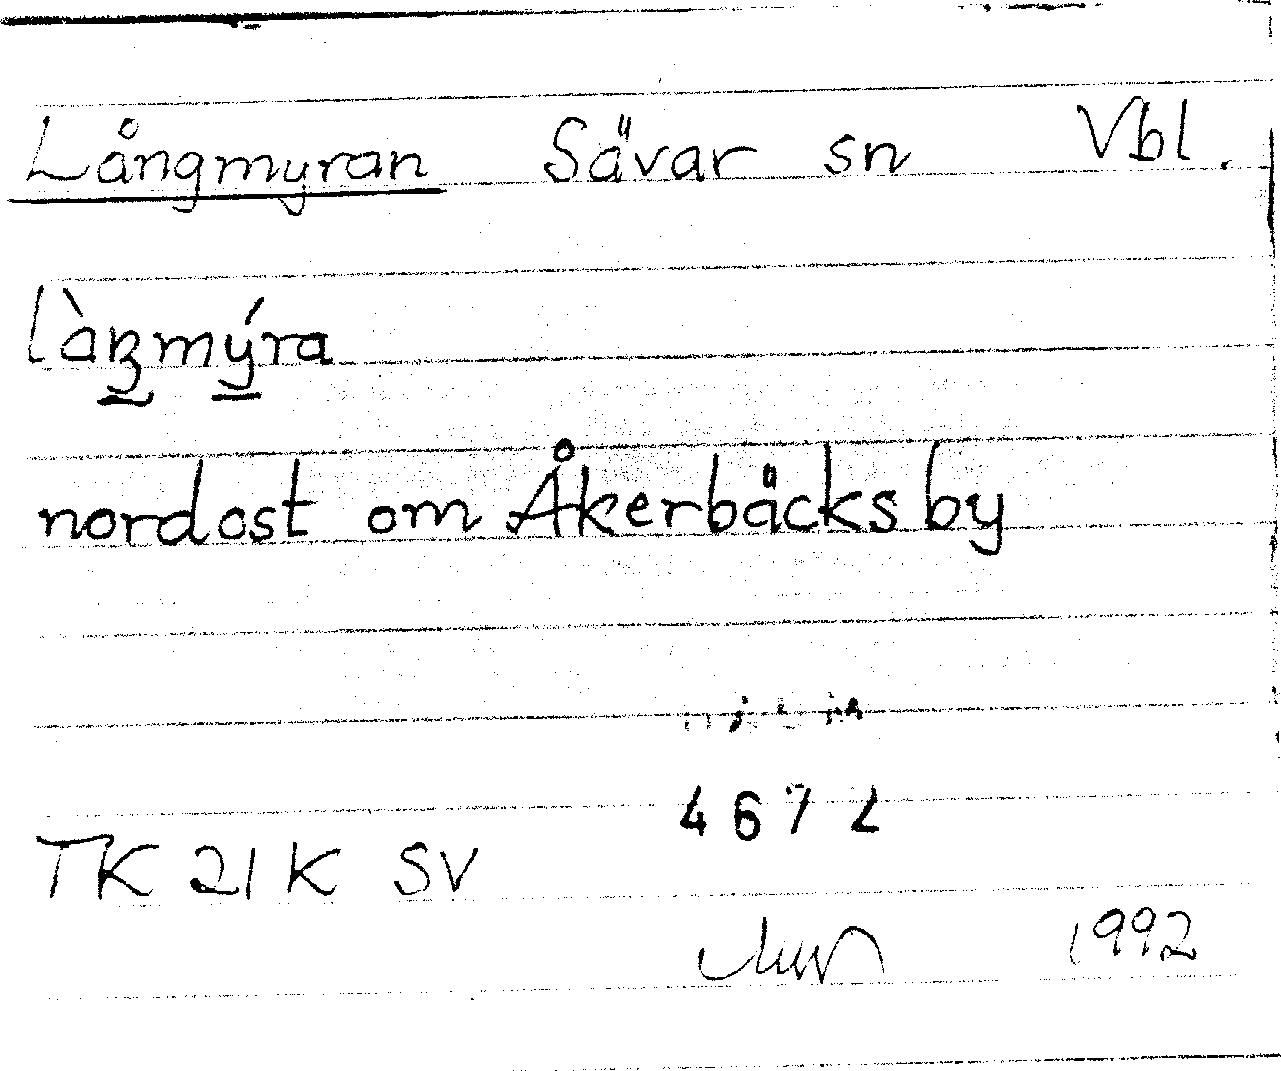 Långmyran Sävar sn Vbl.
làŋmýra
nordost om Åkerbäcksby
4672
TK 21K SV
1992